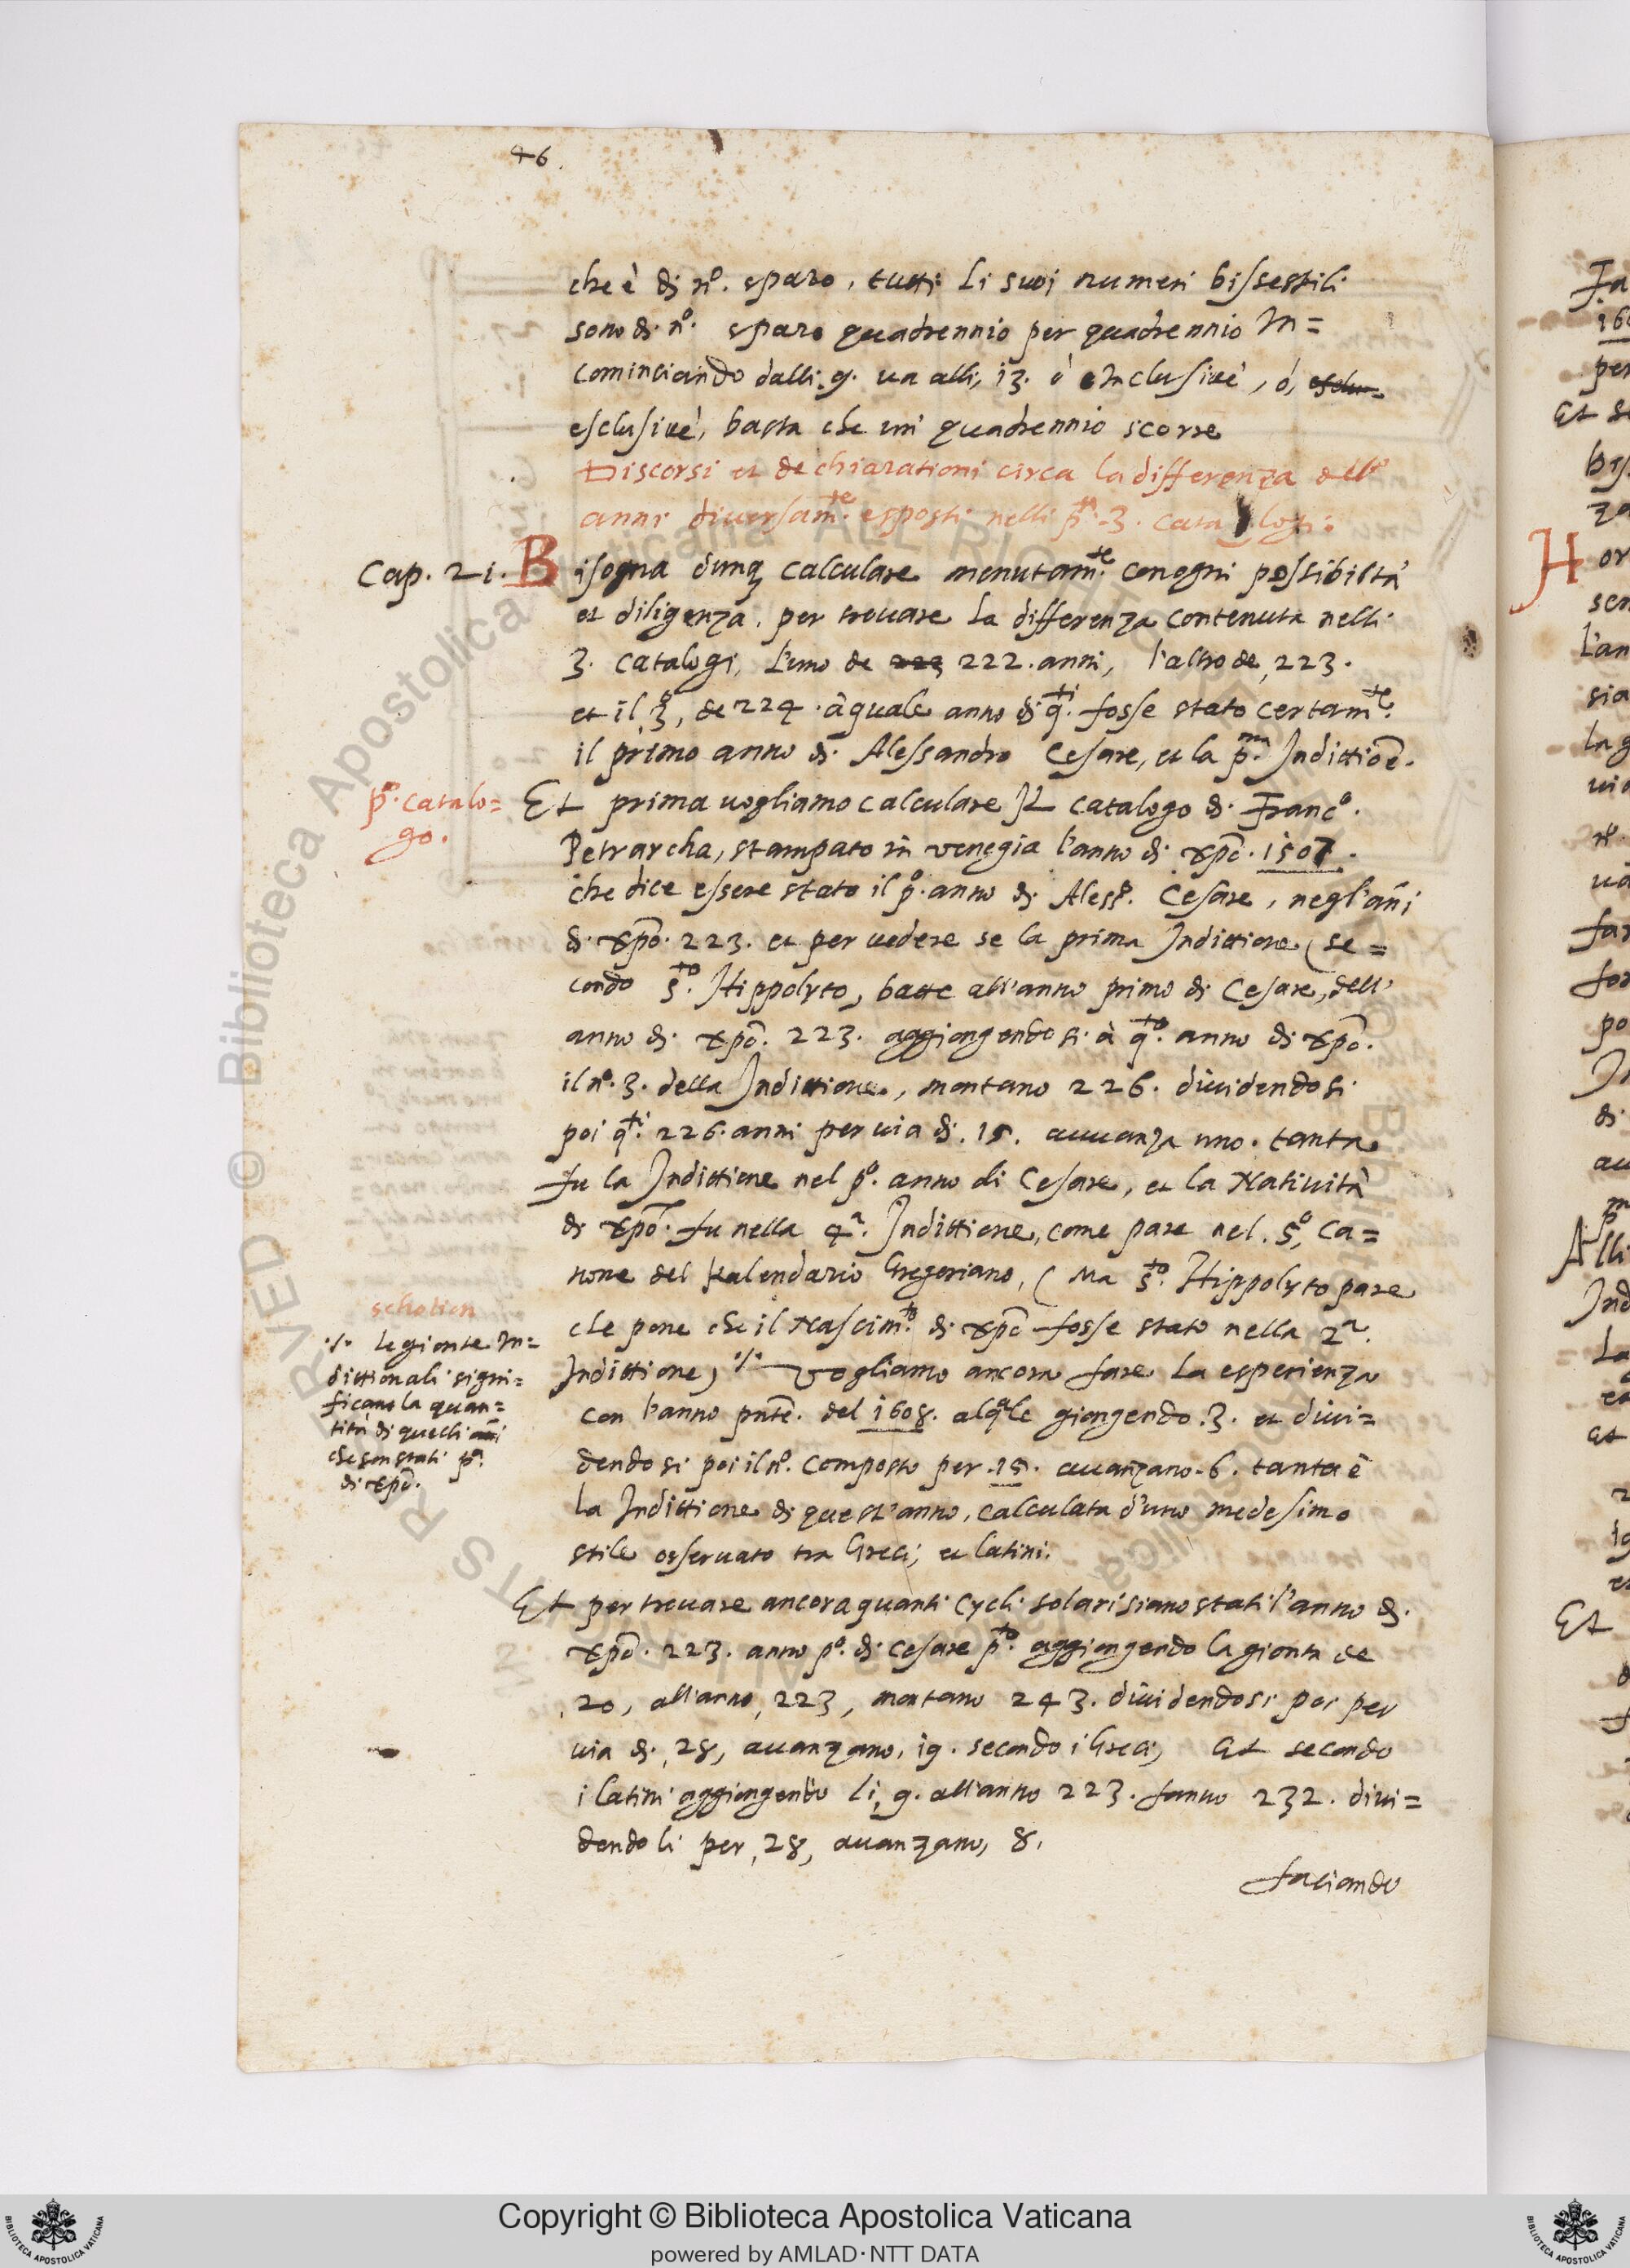 46.
che è di n.º sparo, tutti li suoi numeri bissestili
sono di n.º sparo quadrennio per quadrennio In=
cominciando dalli, 9. va alli, 13. ò Inclusivè, ó, esclu=
esclusivè, basta che un quadrennio scorre
Discorsi et dechiarationi circa la differenza dell'
anni diversam.te esposti nelli p.ti 3. catalogi:
Cap. 21. Bisogna dunq; calculare menutam.te con ogni possibiltà
et diligenza, per trovare la differenza contenuta nelli
3. catalogi, l'uno de 223 222. anni, l'altro de, 223.
et il 3.º, de 224. à quale anno di q.ti fosse stato certam.te
il primo anno di Alessandro Cesare, et la p.ma Indittiõe.
p.º catalo=
go.
Et prima vogliamo calculare Il catalogo di Franc.º
Petrarcha, stampato in venegia l'anno di xpõ. 1507.
che dice essere stato il p.º anno di Aless.º Cesare, negl'añi
di xpõ. 223. et per vedere se la prima Indittione (se=
condo s.to Hippolyto, batte all'anno primo di Cesare, dell'
anno di xpõ. 223. aggiongendosi à q.to anno di xpõ.
il n.º 3. della Indittione, montano 226. dividendosi
poi q.ti 226. anni per via di. 15. avvanza uno. tanta
fu la Indittione nel p.º anno di Cesare, et la Natività
di xpõ. fu nella 4.ª Indittione, come pare nel. 5.º, Ca=
none del Kalendario Gregoriano, (Ma s.to Hippolyto pare
che pone che il Nascim.to di xpõ fosse stato nella 2.ª
Indittione) ·/· vogliamo ancora fare la esperienza
con l'anno pñte. del 1608. al q.ale giongendo .3. et divi=
dendosi poi il n.º composto per .15. avanzano. 6. tanta è
la Indittione di quest'anno, calculata d'uno medesimo
stile osservato tra Greci, et latini.
scholion
·/· le gionte In=
dittionali signi=
ficano la quan=
tità di quelli añi
che son stati p.ª
di xpõ.
Et per trovare ancora quanti Cycli solari siano stati l'anno di
xpõ. 223. anno p.º di Cesare p.to aggiongendo la gionta de
,20, all'anno, 223, montano 243. dividendosi poi per
via di, 28, avanzano, 19. secondo i Greci, Et secondo
i latini aggiongendo li, 9. all'anno 223. fanno 232. divi=
dendoli per, 28, avanzano, 8.
faciando
© Biblioteca Apostolica Vaticana ALL RIGHTS RESERVED
Copyright © Biblioteca Apostolica Vaticana
powered by AMLAD·NTT DATA
BIBLIOTECA APOSTOLICA VATICANA
BIBLIOTECA APOSTOLICA VATICANA